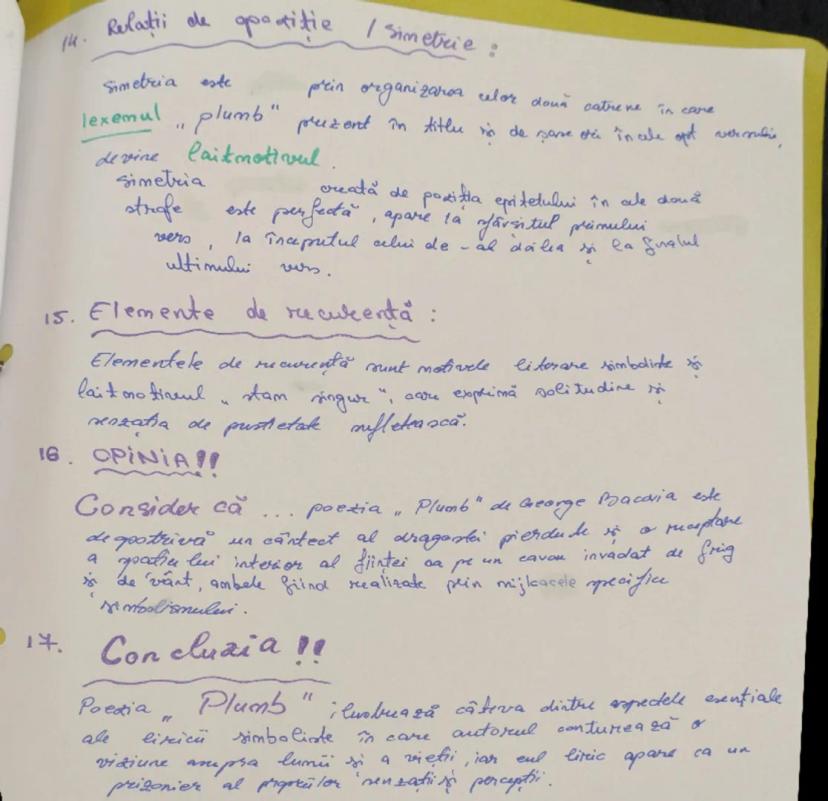 14. Relații de opoziție / simetrie :
simetria este prin organizarea celor două catrene în care
lexemul „plumb" prezent în titlu și de șase ori în cele opt versuri,
devine laitmotivul.
simetria creată de poziția epitetului în cele două
strofe este perfectă, apare la sfârșitul primului
vers, la începutul celui de-al doilea și la finalul
ultimului vers.
15. Elemente de recurență :
Elementele de recurență sunt motivele literare simboliste și
laitmotivul „stam singur", care exprimă solitudine și
senzația de pustietate sufletească.
16. OPINIA!!
Consider că ... poezia „Plumb" de George Bacovia este
deopotrivă un cântect al dragostei pierdute și o receptare
a spațiului interior al ființei ca pe un cavou invadat de frig
și de vânt, ambele fiind realizate prin mijloacele specifice
simbolismului.
17. Concluzia!!
Poezia „Plumb" ilustrează câteva dintre aspectele esențiale
ale liricii simboliste în care autorul conturează o
viziune asupra lumii și a vieții, iar eul liric apare ca un
prizonier al propriilor senzații și percepții.